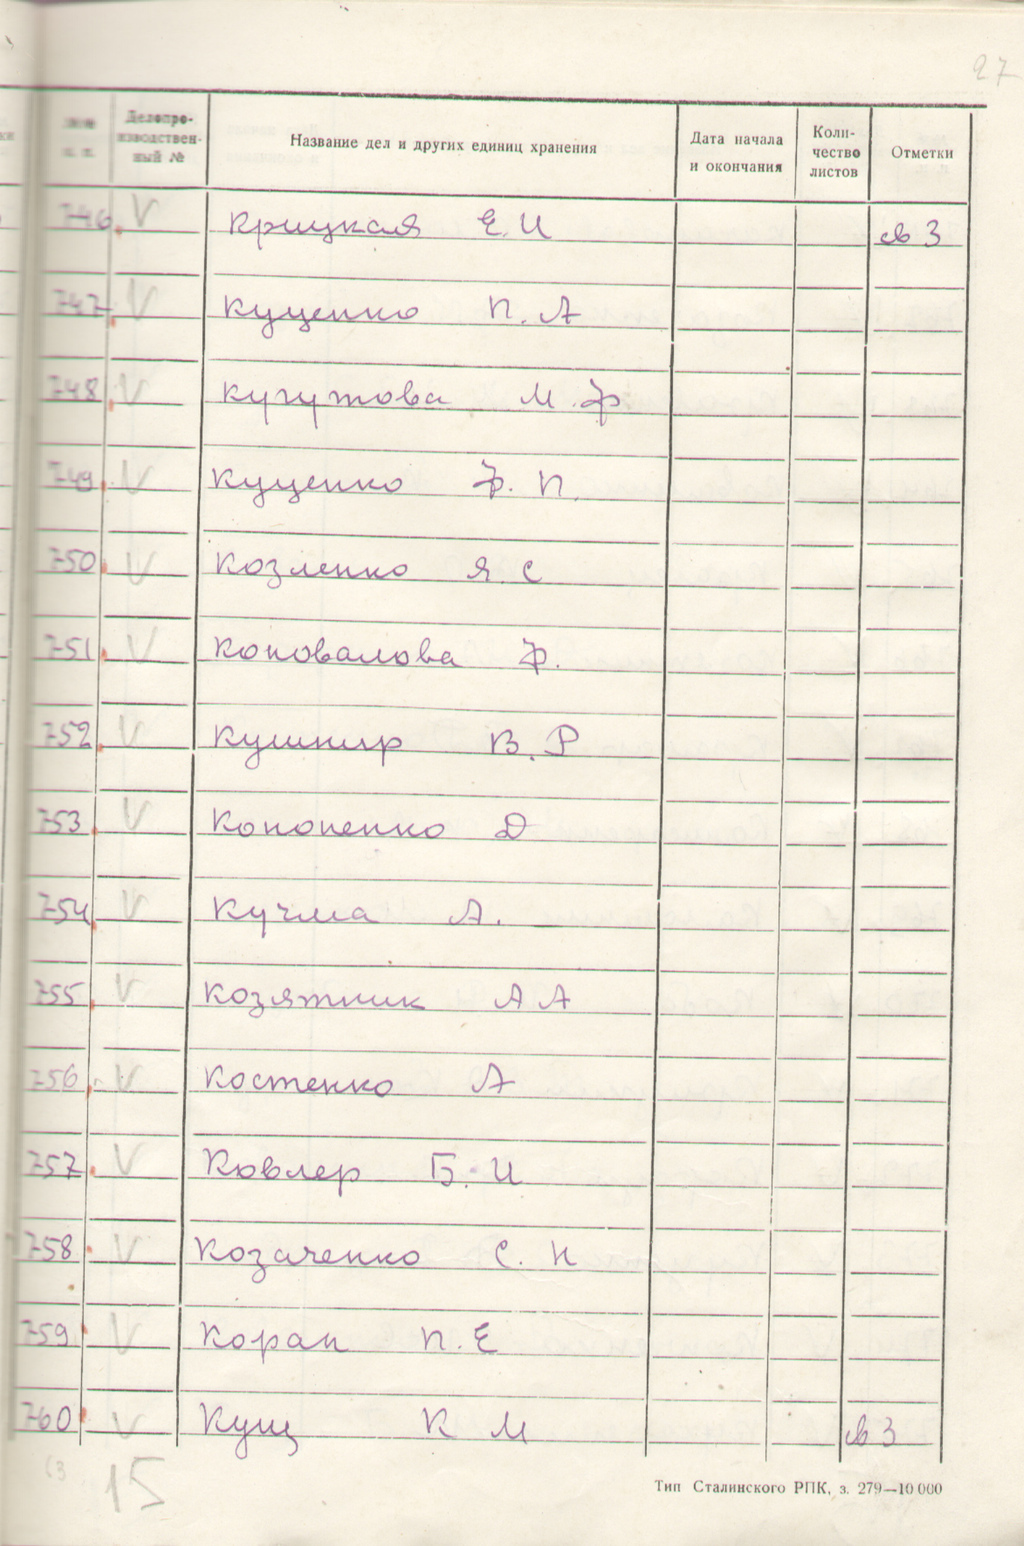 27
Делопроизводственный №
Название дел и других единиц хранения
Дата начала и окончания
Количество листов
Отметки
746 V Крицкая Е.И св 3
747 V Куценко П.А
748 V Кугутова М.Ф
749 V Куценко Ф.П.
750 V Козленко Я.С
751 V Коновалова Ф.
752 V Кушнир В.Р
753 V Кононенко Д
754 V Кучма А.
755 V Козятник А А
756 V Костенко А
757 V Ковлер Б.И
758 V Козаченко С.Н
759 V Коран П.Е
760 V Кущ К М св 3
15
Тип Сталинского РПК, з. 279—10 000